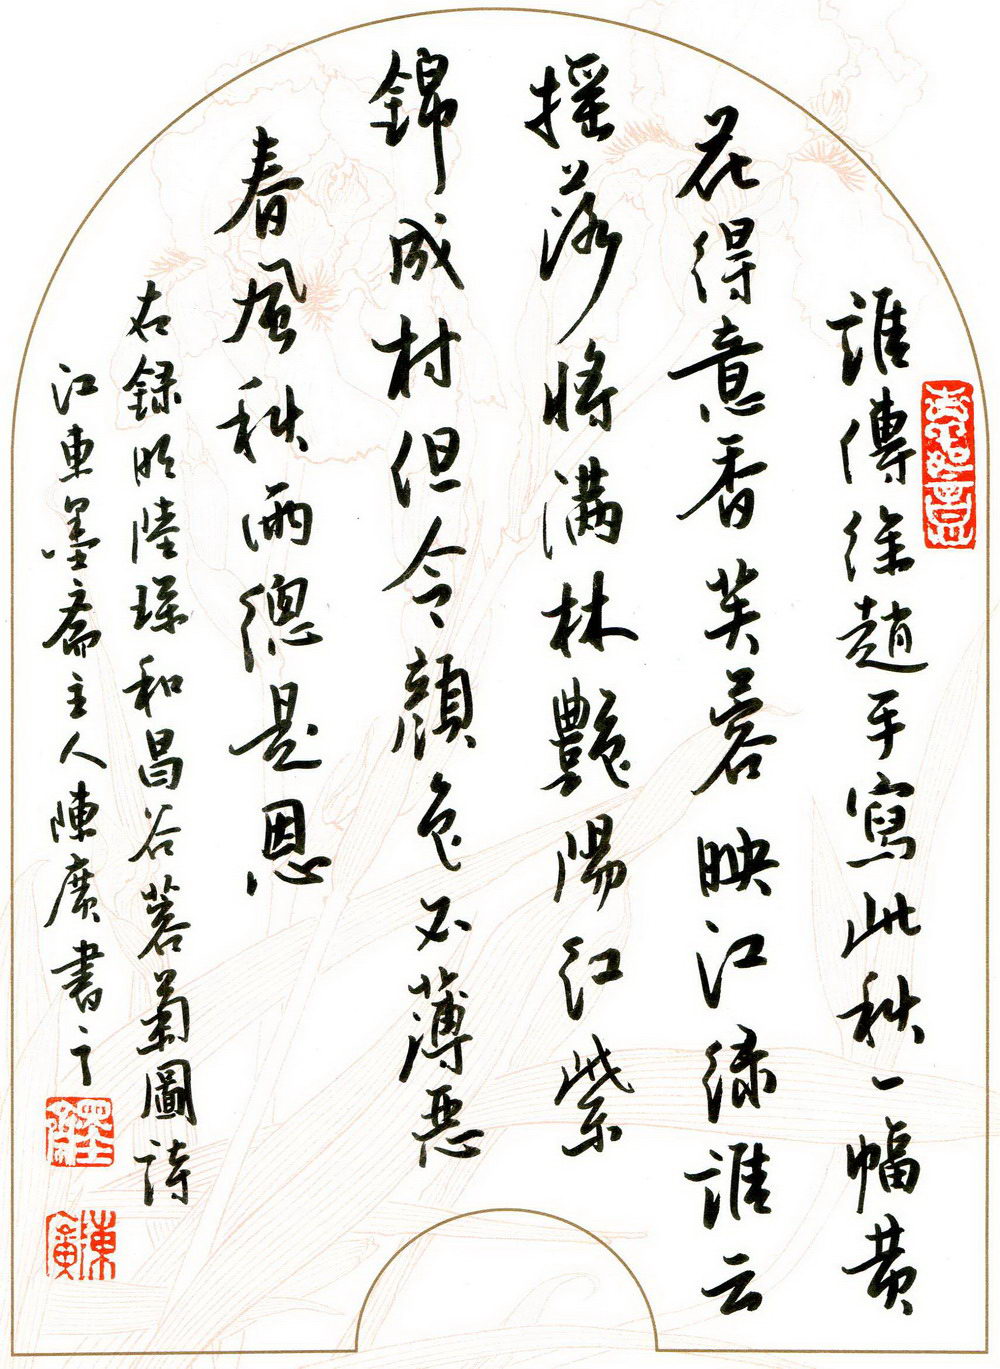 誰傳徐趙手寫此秋一幅黄
花得意香芙蓉映江綠誰云
摇落將满林艷陽紅紫
錦成村但令顔色不薄惡
春風秋雨總是恩
右録明陸深和昌谷蓉菊圖詩
江東墨齋主人陳廣書之
墨齋
陳廣